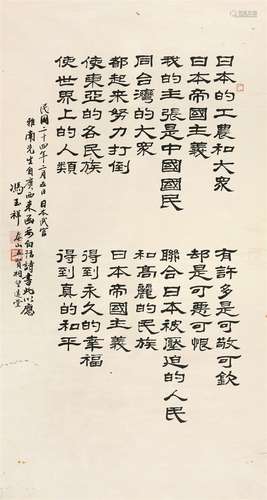 日本的工農和大衆　有許多是可敬可欽
日本帝國主義　却是可惡可恨
我的主張是中國國民　聯合日本被壓迫的人民
同台灣的大衆　和高麗的民族
都起來努力打倒　日本帝國主義
使東亞的各民族　得到永久的幸福
使世界上的人類　得到真的和平
民國二十四年二月五日日本武官
雅南先生自廣西來函要白話詩書此以應
馮玉祥　泰山五賢祠